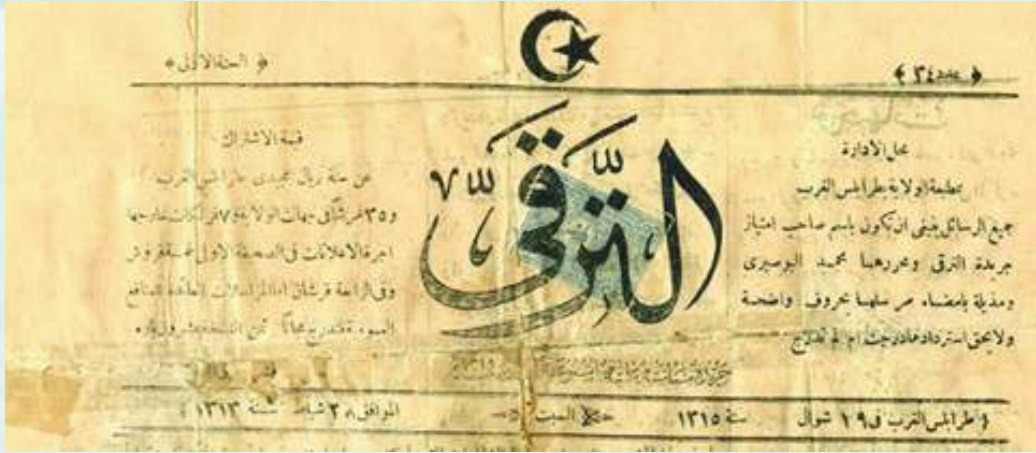 ﴿ عدد ٣٤ ﴾
﴿ السنة الاولى ﴾
الترقى
محل الادارة
بمطبعة ولاية طرابلس الغرب
جميع الرسائل ينبغى ان تكون باسم صاحب امتياز
جريدة الترقى ومحررها محمد البوصيرى
ومذيلة بامضاء مرسلها بحروف واضحة
ولا يحق استرداد مادرجت ام لم تدرج
قيمة الاشتراك
عن سنة ريال مجيدى طرابلس الغرب
و٣٥ غرشا فى جهات الولاية و٧ فرنكات خارجها
اجرة الاعلانات فى الصحيفة الاولى خمسة قروش
وفى الرابعة قرشان اما المراسلات العائدة لمنافع
مجاناً ثمن
طرابلس الغرب فى ١٩ شوال سنة ١٣١٥ السبت الموافق ٢٨ شباط سنة ١٣١٣